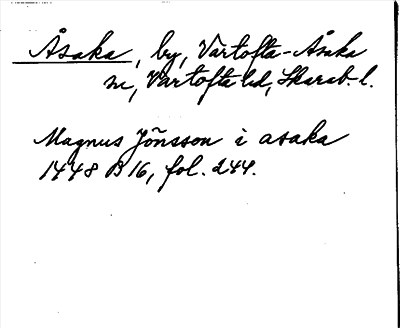 Åsaka, by, Vartofta-Åsaka
sn, Vartofta hd, Skarab. l.
Magnus Jönsson i asaka
1448 B 16, fol. 244.